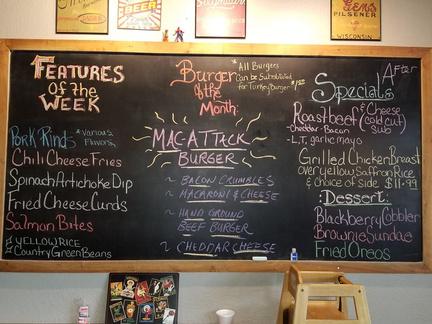 BEER
Gens
PILSENER
WISCONSIN
FEATURES
Of the
WEEK
Pork Rinds *Various Flavors
Chili Cheese Fries
Spinach Artichoke Dip
Fried Cheese Curds
Salmon Bites
YELLOW RICE
Country Green Beans
Burger
of the
Month:
*All Burgers
Can be Substituted
for Turkey Burger
MAC-ATTACK
BURGER
~ BACON CRUMBLES
~ MACARONI & CHEESE
~ HAND GROUND
BEEF BURGER
~ CHEDDAR CHEESE
After
Specials
Roast beef & Cheese
(cold cut)
Sub
-Cheddar-Bacon
-L,T, garlic mayo
Grilled Chicken Breast
over yellow Saffron Rice
& choice of side $11.99
Dessert:
Blackberry Cobbler
Brownie Sundae
Fried Oreos